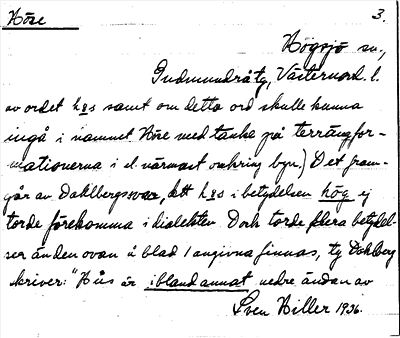 Höse 3.
Högsjö sn.,
Gudmundrå tg, Västernorrl. l.
av ordet hus samt om detta ord skulle kunna
ingå i namnet Höse med tanke på terrängfor-
mationerna i el. närmast omkring byn.) Det fram-
går av Dahlbergs svar, att hus i betydelsen hög ej
torde förekomma i dialekten. Dock torde flera betydel-
ser än den ovan å blad 1 angivna finnas, ty Dahlberg
skriver: "Hus är ibland annat nedre ändan av
Sven Hiller 1936.